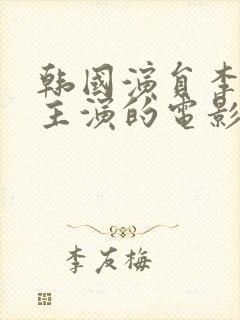 韩國演員李
主演的電影
李友梅